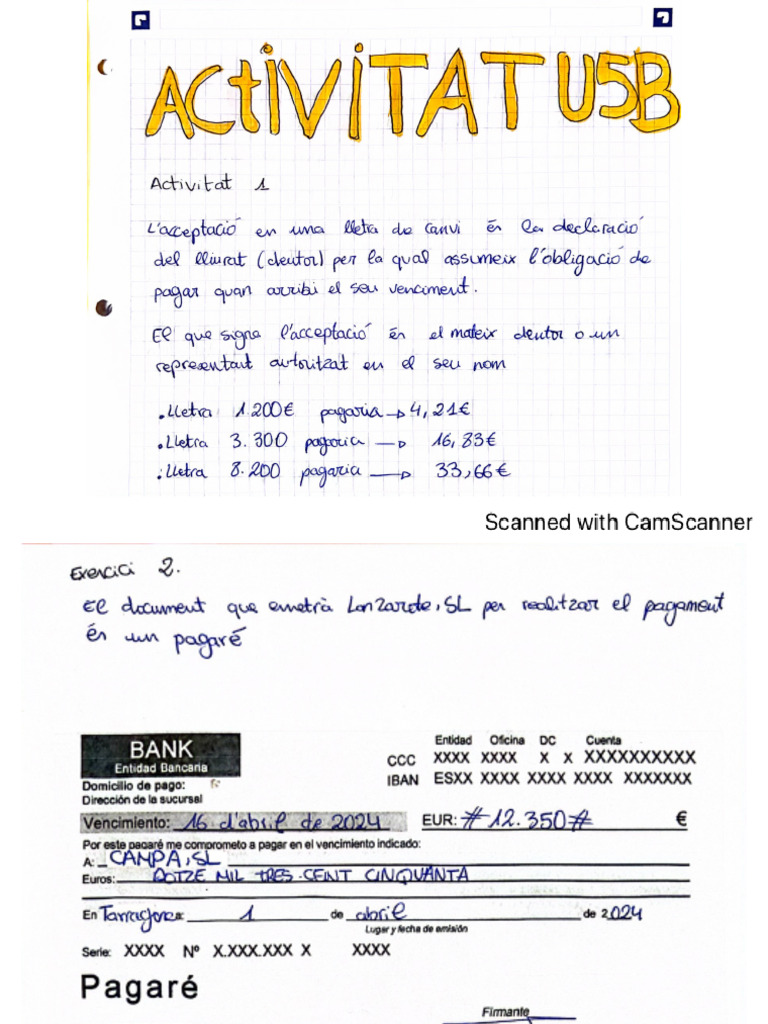 ACTIVITAT U5B
Activitat 1
L'acceptació en una lletra de canvi és la declaració
del lliurat (deutor) per la qual assumeix l'obligació de
pagar quan arribi el seu venciment.
El que signa l'acceptació és el mateix deutor o un
representant autoritzat en el seu nom
. Lletra 1.200€ pagaria → 4,21€
. Lletra 3.300 pagaria → 16,83€
. Lletra 8.200 pagaria → 33,66€
Scanned with CamScanner
Exercici 2.
El document que emetrà Lanzarote, SL per realitzar el pagament
és un pagaré
BANK
Entidad Bancaria
Domicilio de pago:
Dirección de la sucursal
Entidad Oficina DC Cuenta
CCC XXXX XXXX X X XXXXXXXXXX
IBAN ESXX XXXX XXXX XXXX XXXXXXX
Vencimiento: 16 d'abril de 2024 EUR: #12.350# €
Por este pagaré me comprometo a pagar en el vencimiento indicado:
A: CANPA, SL
Euros: DOTZE MIL TRES-CEINT CINQUANTA
En Tarragona a: 1 de abril de 2024
Lugar y fecha de emisión
Serie: XXXX Nº X.XXX.XXX X XXXX
Pagaré
Firmante